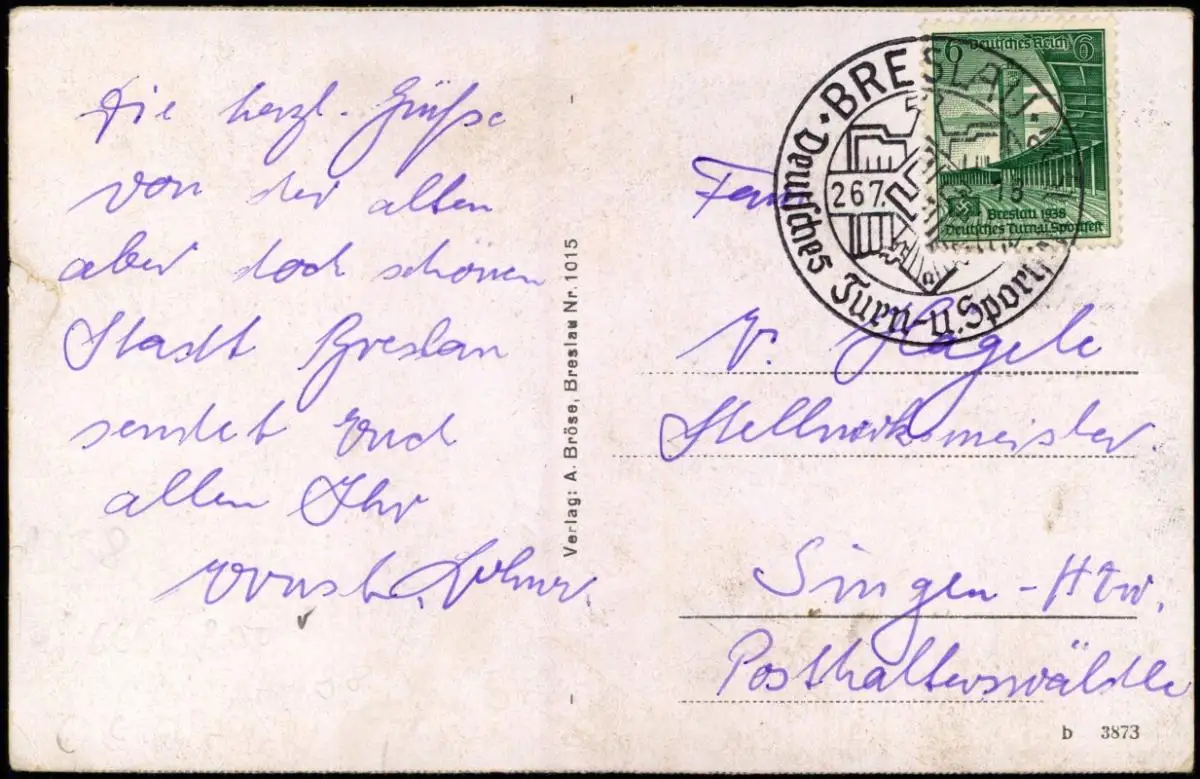 Die herzl. Grüße
von der alten
aber doch schönen
Stadt Breslau
sendet Euch
allen Ihr
Ernst
Verlag: A. Bröse, Breslau Nr. 1015
6 Deutsches Reich 6
Breslau 1938
Deutsches Turn u. Sportfest
BRESLAU
Deutsches Turn- u. Sport
267
Fam
Hägele
Stellwerksmeister.
Singen - Htw.
Posthalterswäldle
b 3873